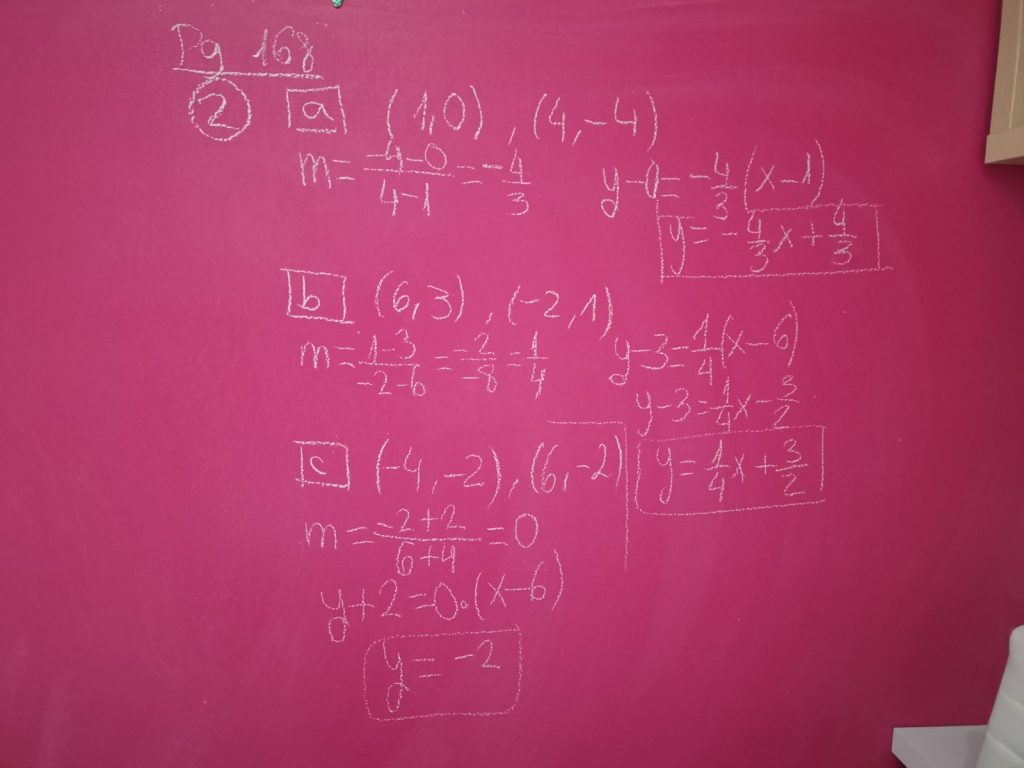 Pg 168
② a (1,0), (4,-4)
m = (-4-0)/(4-1) = -4/3
y-0 = -4/3(x-1)
y = -4/3x + 4/3
b (6,3), (-2,1)
m = (1-3)/(-2-6) = -2/-8 = 1/4
y-3 = 1/4(x-6)
y-3 = 1/4x - 3/2
y = 1/4x + 3/2
c (-4,-2), (6,-2)
m = (-2+2)/(6+4) = 0
y+2 = 0·(x-6)
y = -2